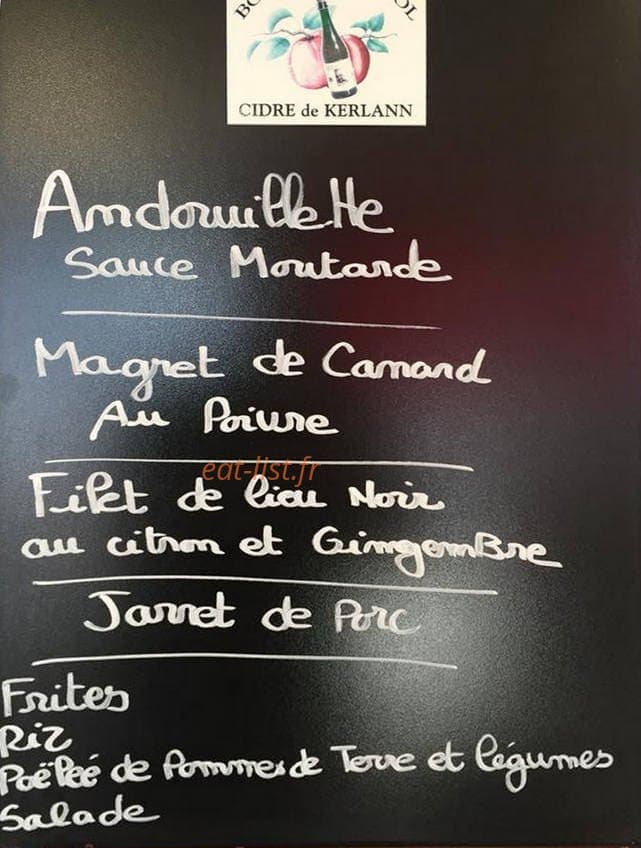 CIDRE de KERLANN
Andouillette
Sauce Moutarde
Magret de Canard
Au Poivre
eat-list.fr
Filet de lieu Noir
au citron et GingemBre
Jarret de Porc
Frites
Riz
Poëlée de Pommes de Terre et légumes
Salade